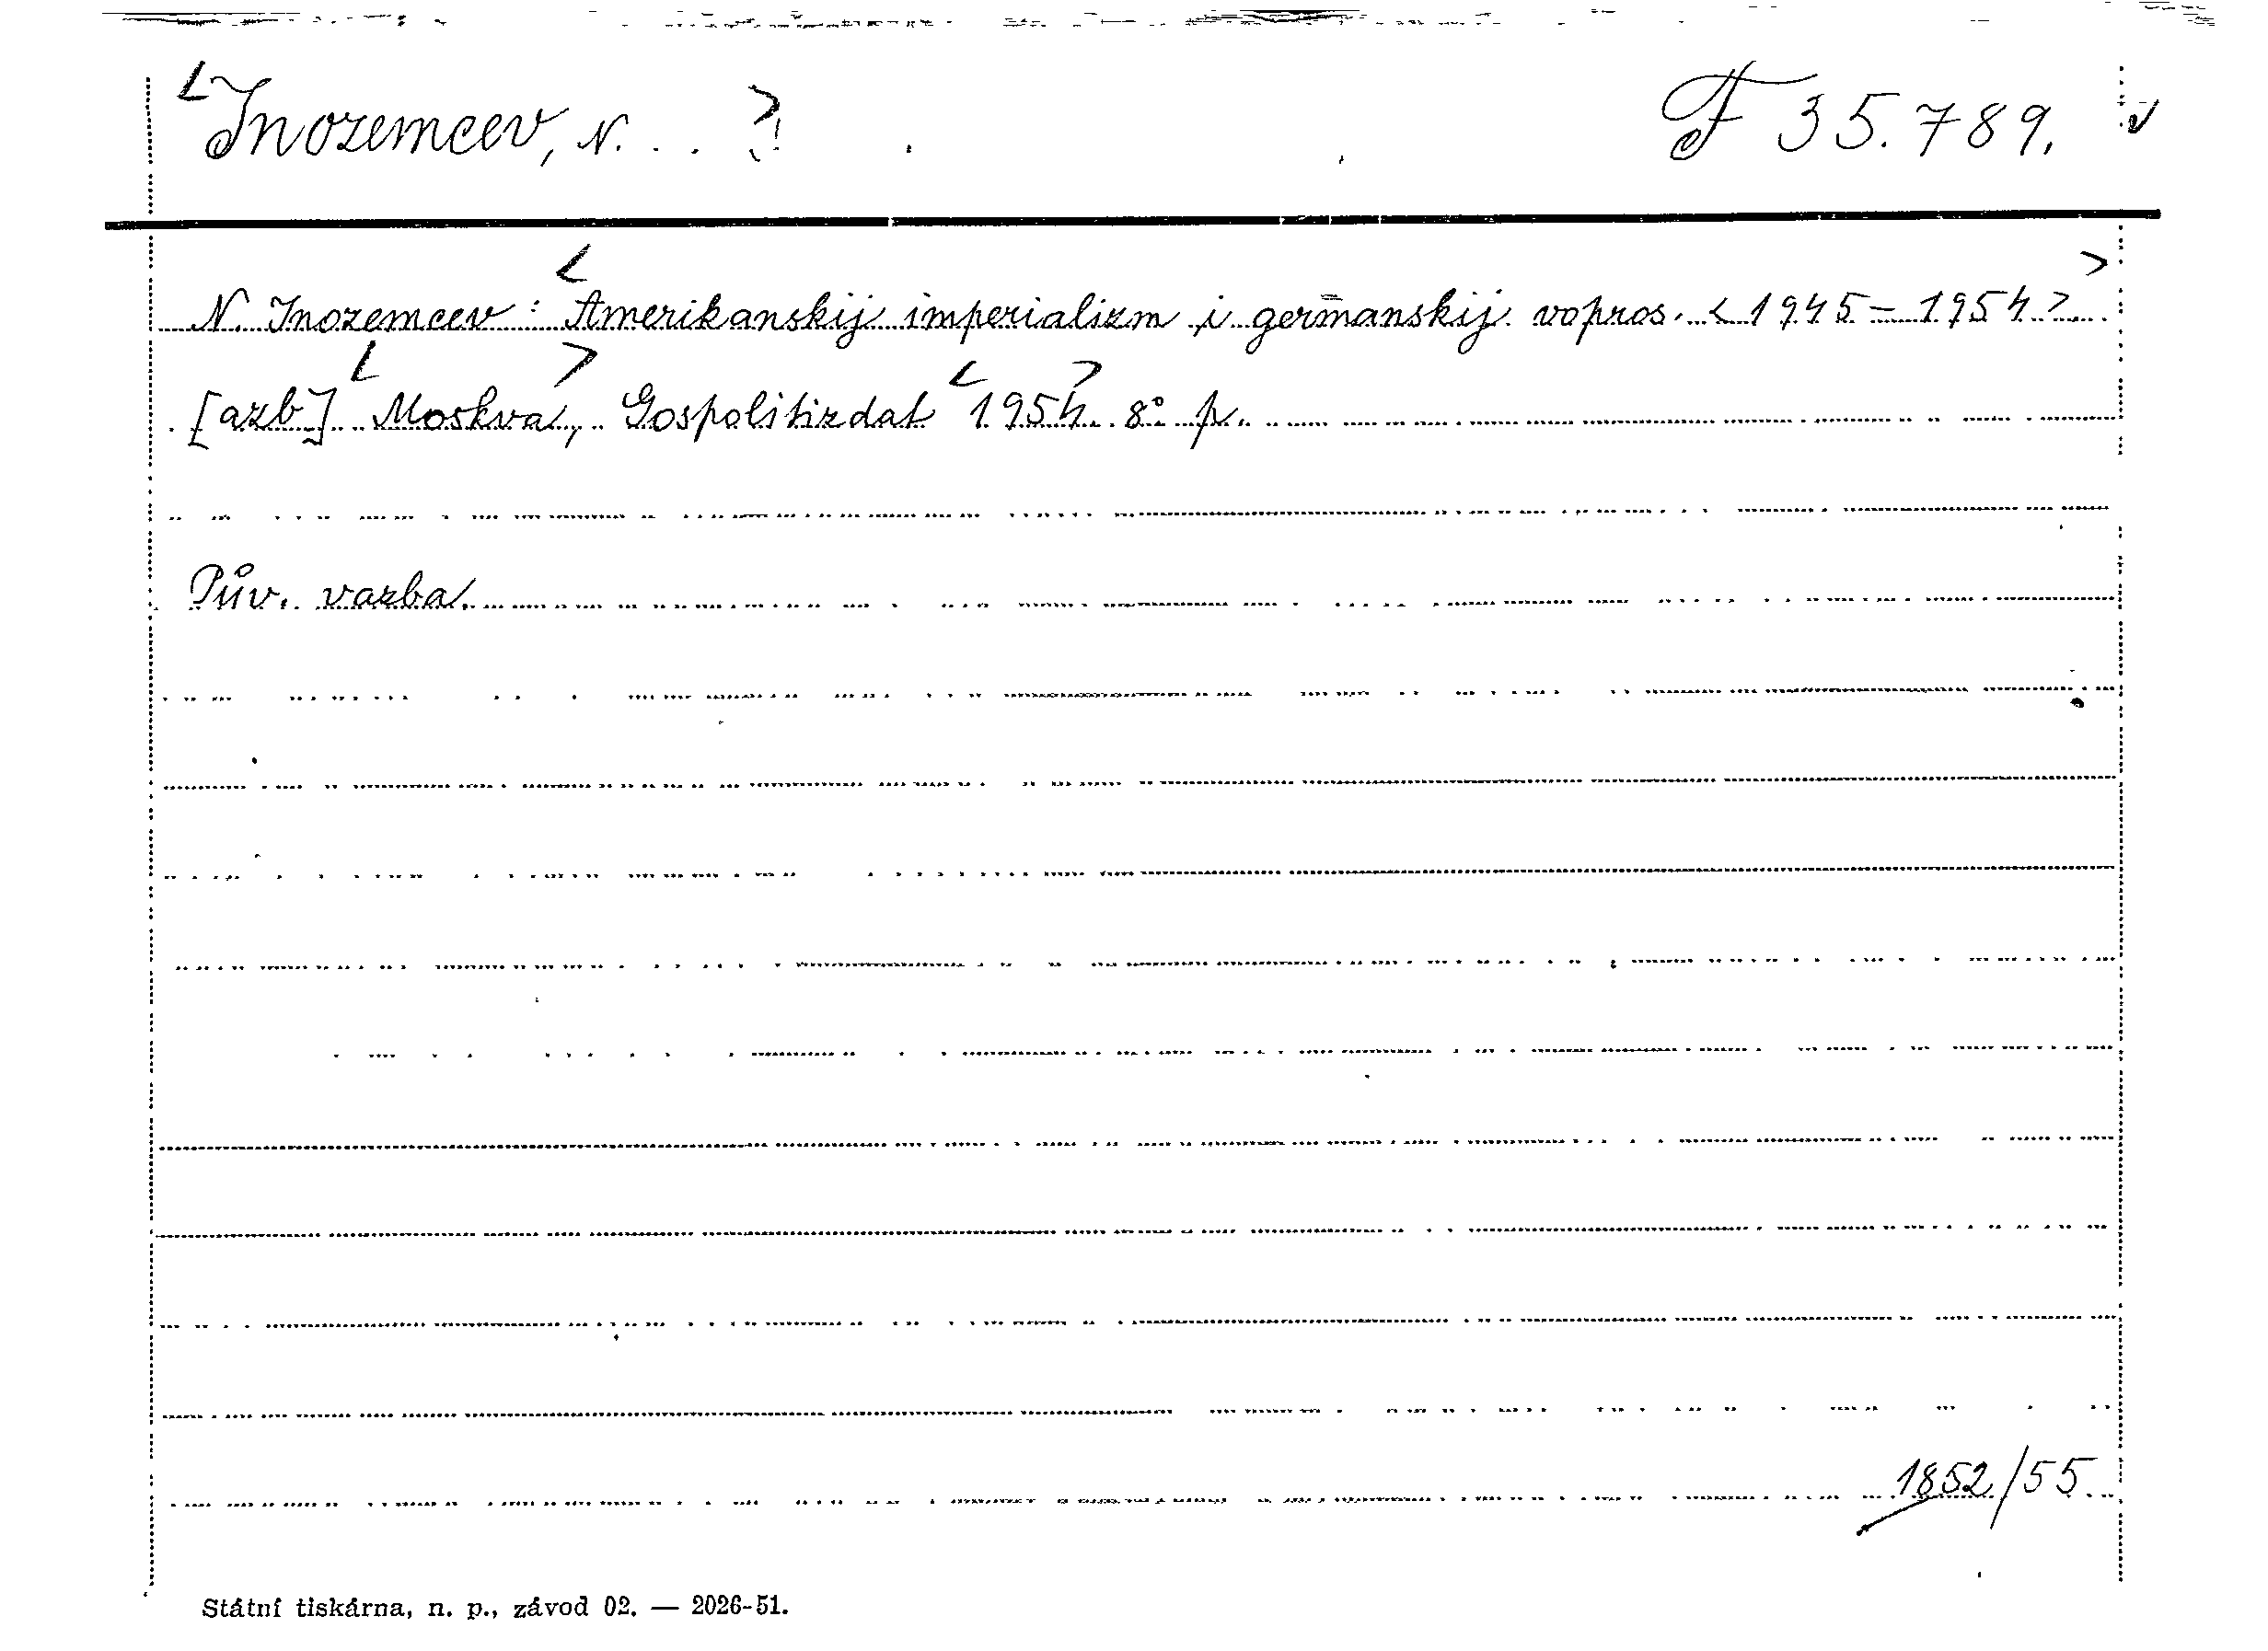 <Inozemcev, N. . . > F 35.789.
N. Inozemcev: <Amerikanskij imperializm i germanskij vopros. <1945-1954>.>
[azb] <Moskva,> Gospolitizdat <1954>. 8° p.
Pův. vazba.
1852/55.
Státní tiskárna, n. p., závod 02. — 2026-51.